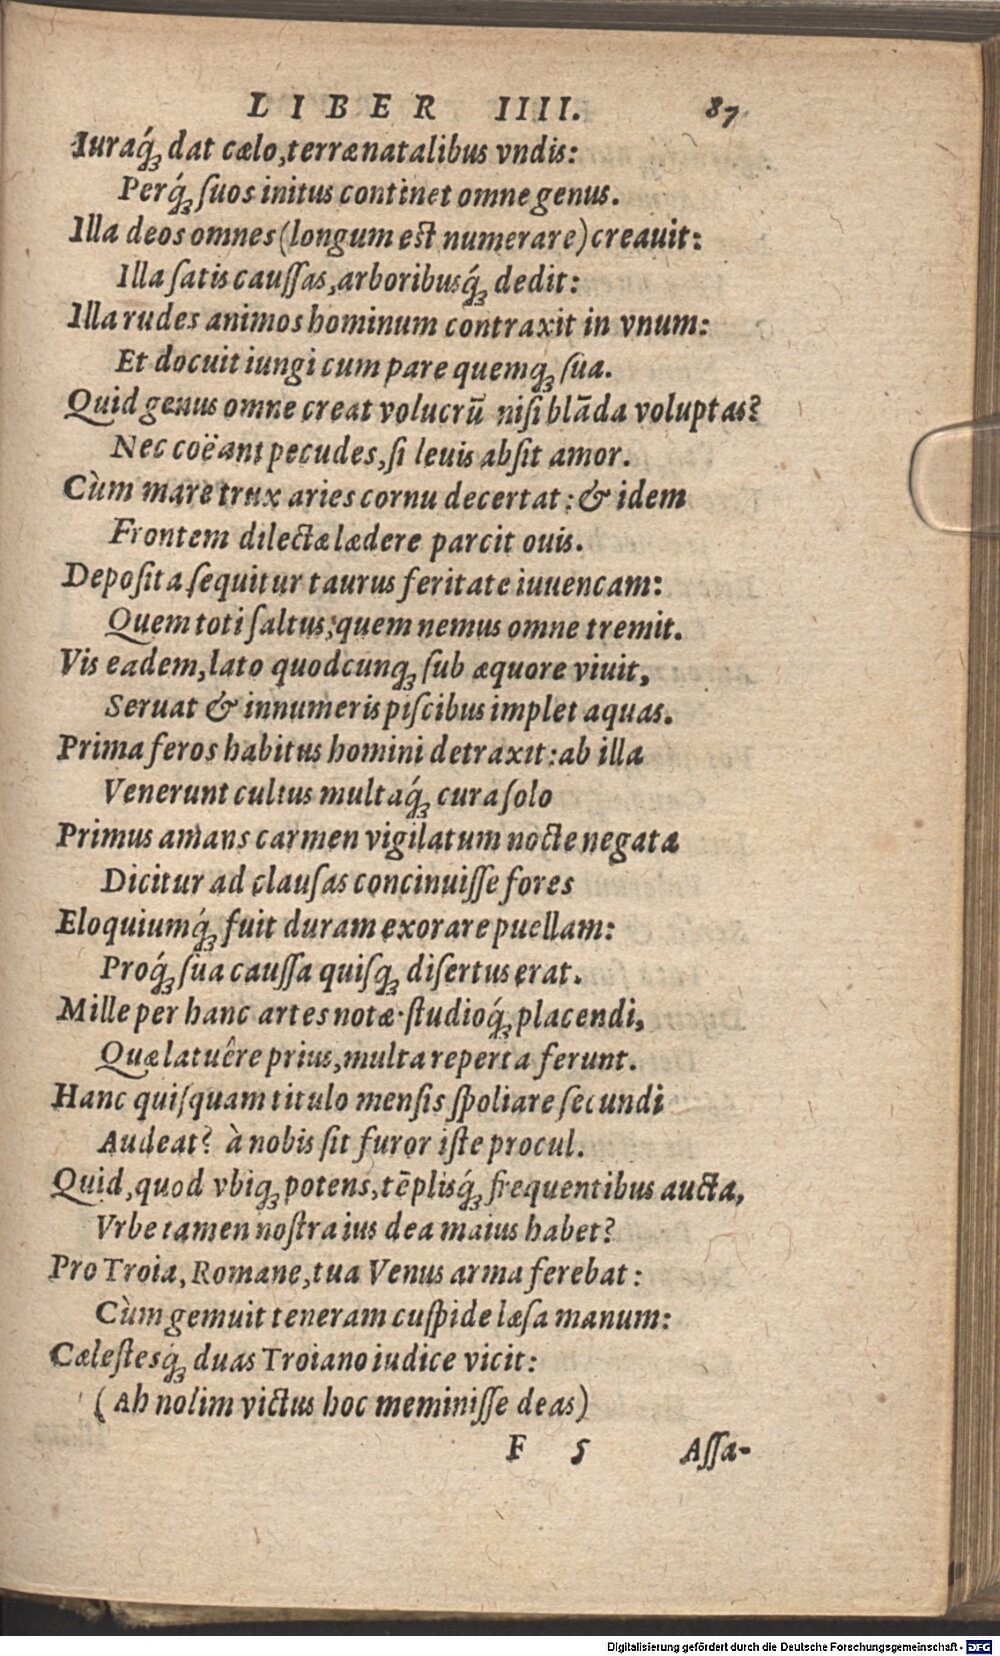 LIBER IIII. 87
Iuraq́; dat cælo, terræ natalibus vndis:
Perq́; ſuos initus continet omne genus.
Illa deos omnes (longum est numerare) creauit:
Illa ſatis cauſſas, arboribusq́; dedit:
Illa rudes animos hominum contraxit in vnum:
Et docuit iungi cum pare quemq; ſua.
Quid genus omne creat volucrū niſi blāda voluptas?
Nec coëant pecudes, ſi leuis abſit amor.
Cùm mare trux aries cornu decertat: & idem
Frontem dilectæ lædere parcit ouis.
Depoſita ſequitur taurus feritate iuuencam:
Quem toti ſaltus, quem nemus omne tremit.
Vis eadem, lato quodcunq; ſub æquore viuit,
Seruat & innumeris piſcibus implet aquas.
Prima feros habitus homini detraxit: ab illa
Venerunt cultus multaq́; cura ſolo
Primus amans carmen vigilatum nocte negata
Dicitur ad clauſas concinuiſſe fores
Eloquiumq́; fuit duram exorare puellam:
Proq́; ſua cauſſa quiſq; diſertus erat.
Mille per hanc artes notæ· ſtudioq́; placendi,
Quæ latuêre prius, multa reperta ferunt.
Hanc quiſquam titulo menſis ſpoliare ſecundi
Audeat? à nobis ſit furor iſte procul.
Quid, quod vbiq; potens, tēplisq́; frequentibus aucta,
Vrbe tamen noſtra ius dea maius habet?
Pro Troia, Romane, tua Venus arma ferebat:
Cùm gemuit teneram cuſpide læſa manum:
Cæleſtesq́; duas Troiano iudice vicit:
(Ah nolim victus hoc meminiſſe deas)
F 5 Aſſa-
Digitalisierung gefördert durch die Deutsche Forschungsgemeinschaft - DFG